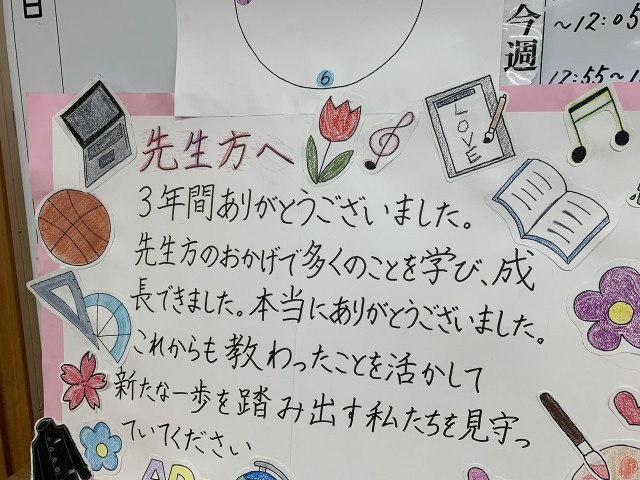 日
今週
~12:05
12:55~1
6
LOVE
先生方へ
3年間ありがとうございました。
先生方のおかげで多くのことを学び、成
長できました。本当にありがとうございました。
これからも教わったことを活かして
新たな一歩を踏み出す私たちを見守っ
ていてください